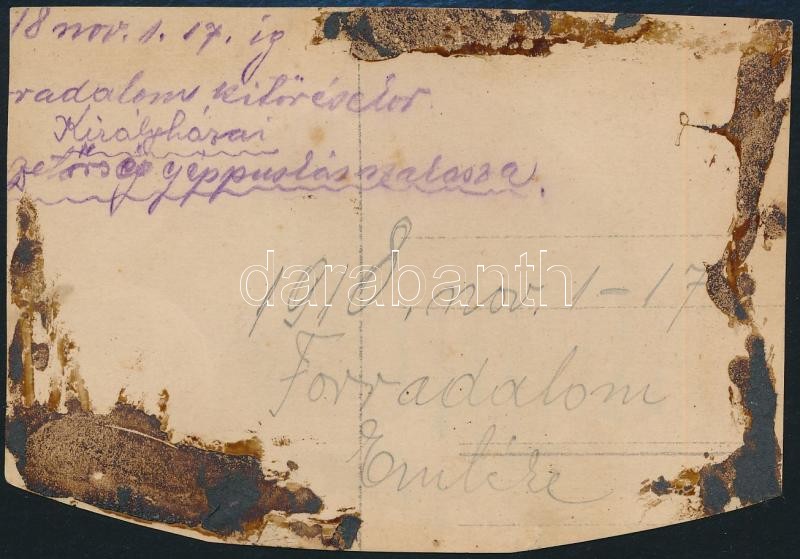 18 nov. 1. 17. ig
radalom kitörésekor
Királyházai
őrség géppuskás szakasza.
darabanth
1918. nov. 1-17
Forradalom
Emléke